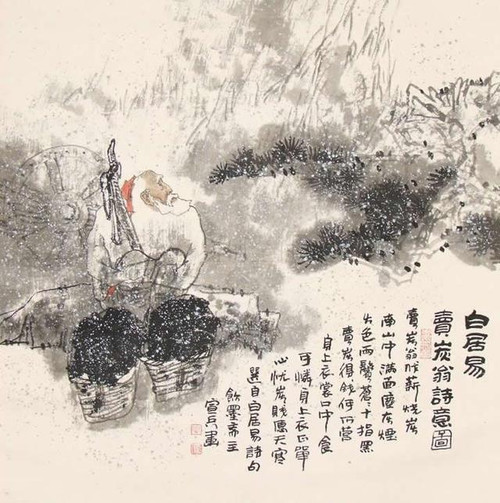 白居易
賣炭翁詩意圖
賣炭翁伐薪燒炭
南山中滿面塵灰煙
火色兩鬢蒼十指黑
賣炭得錢何所營
身上衣裳口中食
可憐身上衣正單
心憂炭賤願天寒
選自白居易詩句
飲墨斋主
畫